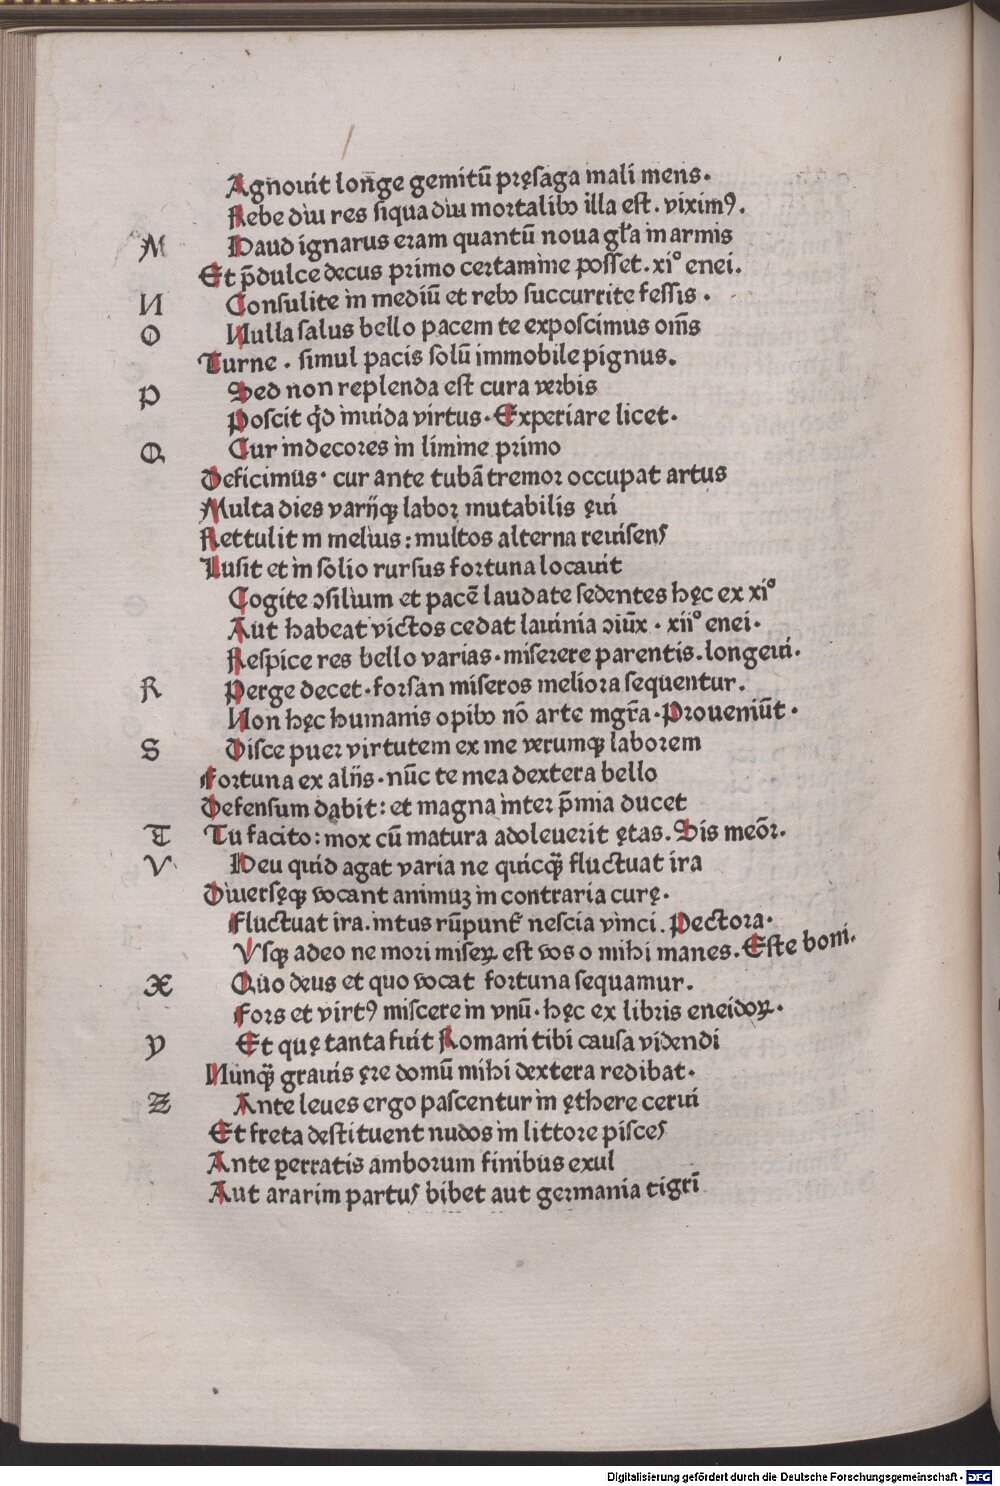 Agnouit longe gemitū pręsaga mali mens.
Rebe diu res siqua diu mortalibꝫ illa est. viximꝰ.
M Haud ignarus eram quantū noua gła in armis
Et p̄dulce decus primo certamine posset. xi° enei.
N Consulite in mediū et rebꝫ succurrite fessis.
O Nulla salus bello pacem te exposcimus om̄s
Turne. simul pacis solū immobile pignus.
P Sed non replenda est cura verbis
Poscit qd̄ inuida virtus. Experiare licet.
Q Cur indecores in limine primo
Deficimus. cur ante tubā tremor occupat artus
Multa dies varijqꝫ labor mutabilis ęui
Rettulit in melius: multos alterna reuisens
Lusit et in solio rursus fortuna locauit
Cogite ↄsilium et pacē laudate sedentes hęc ex xi°
Aut habeat victos cedat lauinia ↄiūx. xii° enei.
Respice res bello varias. miserere parentis. longeui.
R Perge decet. forsan miseros meliora sequentur.
Non hęc humanis opibꝫ nō arte mgr̄a. Proueniūt.
S Disce puer virtutem ex me verumqꝫ laborem
Fortuna ex aliis. nūc te mea dextera bello
Defensum dabit: et magna inter p̄mia ducet
T Tu facito: mox cū matura adoleuerit ętas. Sis meōr.
V Heu quid agat varia ne quicqꝫ̄ fluctuat ira
Diuersęqꝫ vocant animuꝫ in contraria curę.
Fluctuat ira. intus rūpunt̄ nescia vinci. Pectora.
Vsqꝫ adeo ne mori miseꝝ est vos o mihi manes. Este boni.
X Quo deus et quo vocat fortuna sequamur.
Fors et virtꝰ miscere in vnū. hęc ex libris eneidoꝝ.
Y Et quę tanta fuit Romani tibi causa videndi
Nunqꝫ̄ grauis ęre domū mihi dextera redibat.
Z Ante leues ergo pascentur in ęthere cerui
Et freta destituent nudos in littore pisces
Ante ꝑerratis amborum finibus exul
Aut ararim partus bibet aut germania tigrī
Digitalisierung gefördert durch die Deutsche Forschungsgemeinschaft - DFG